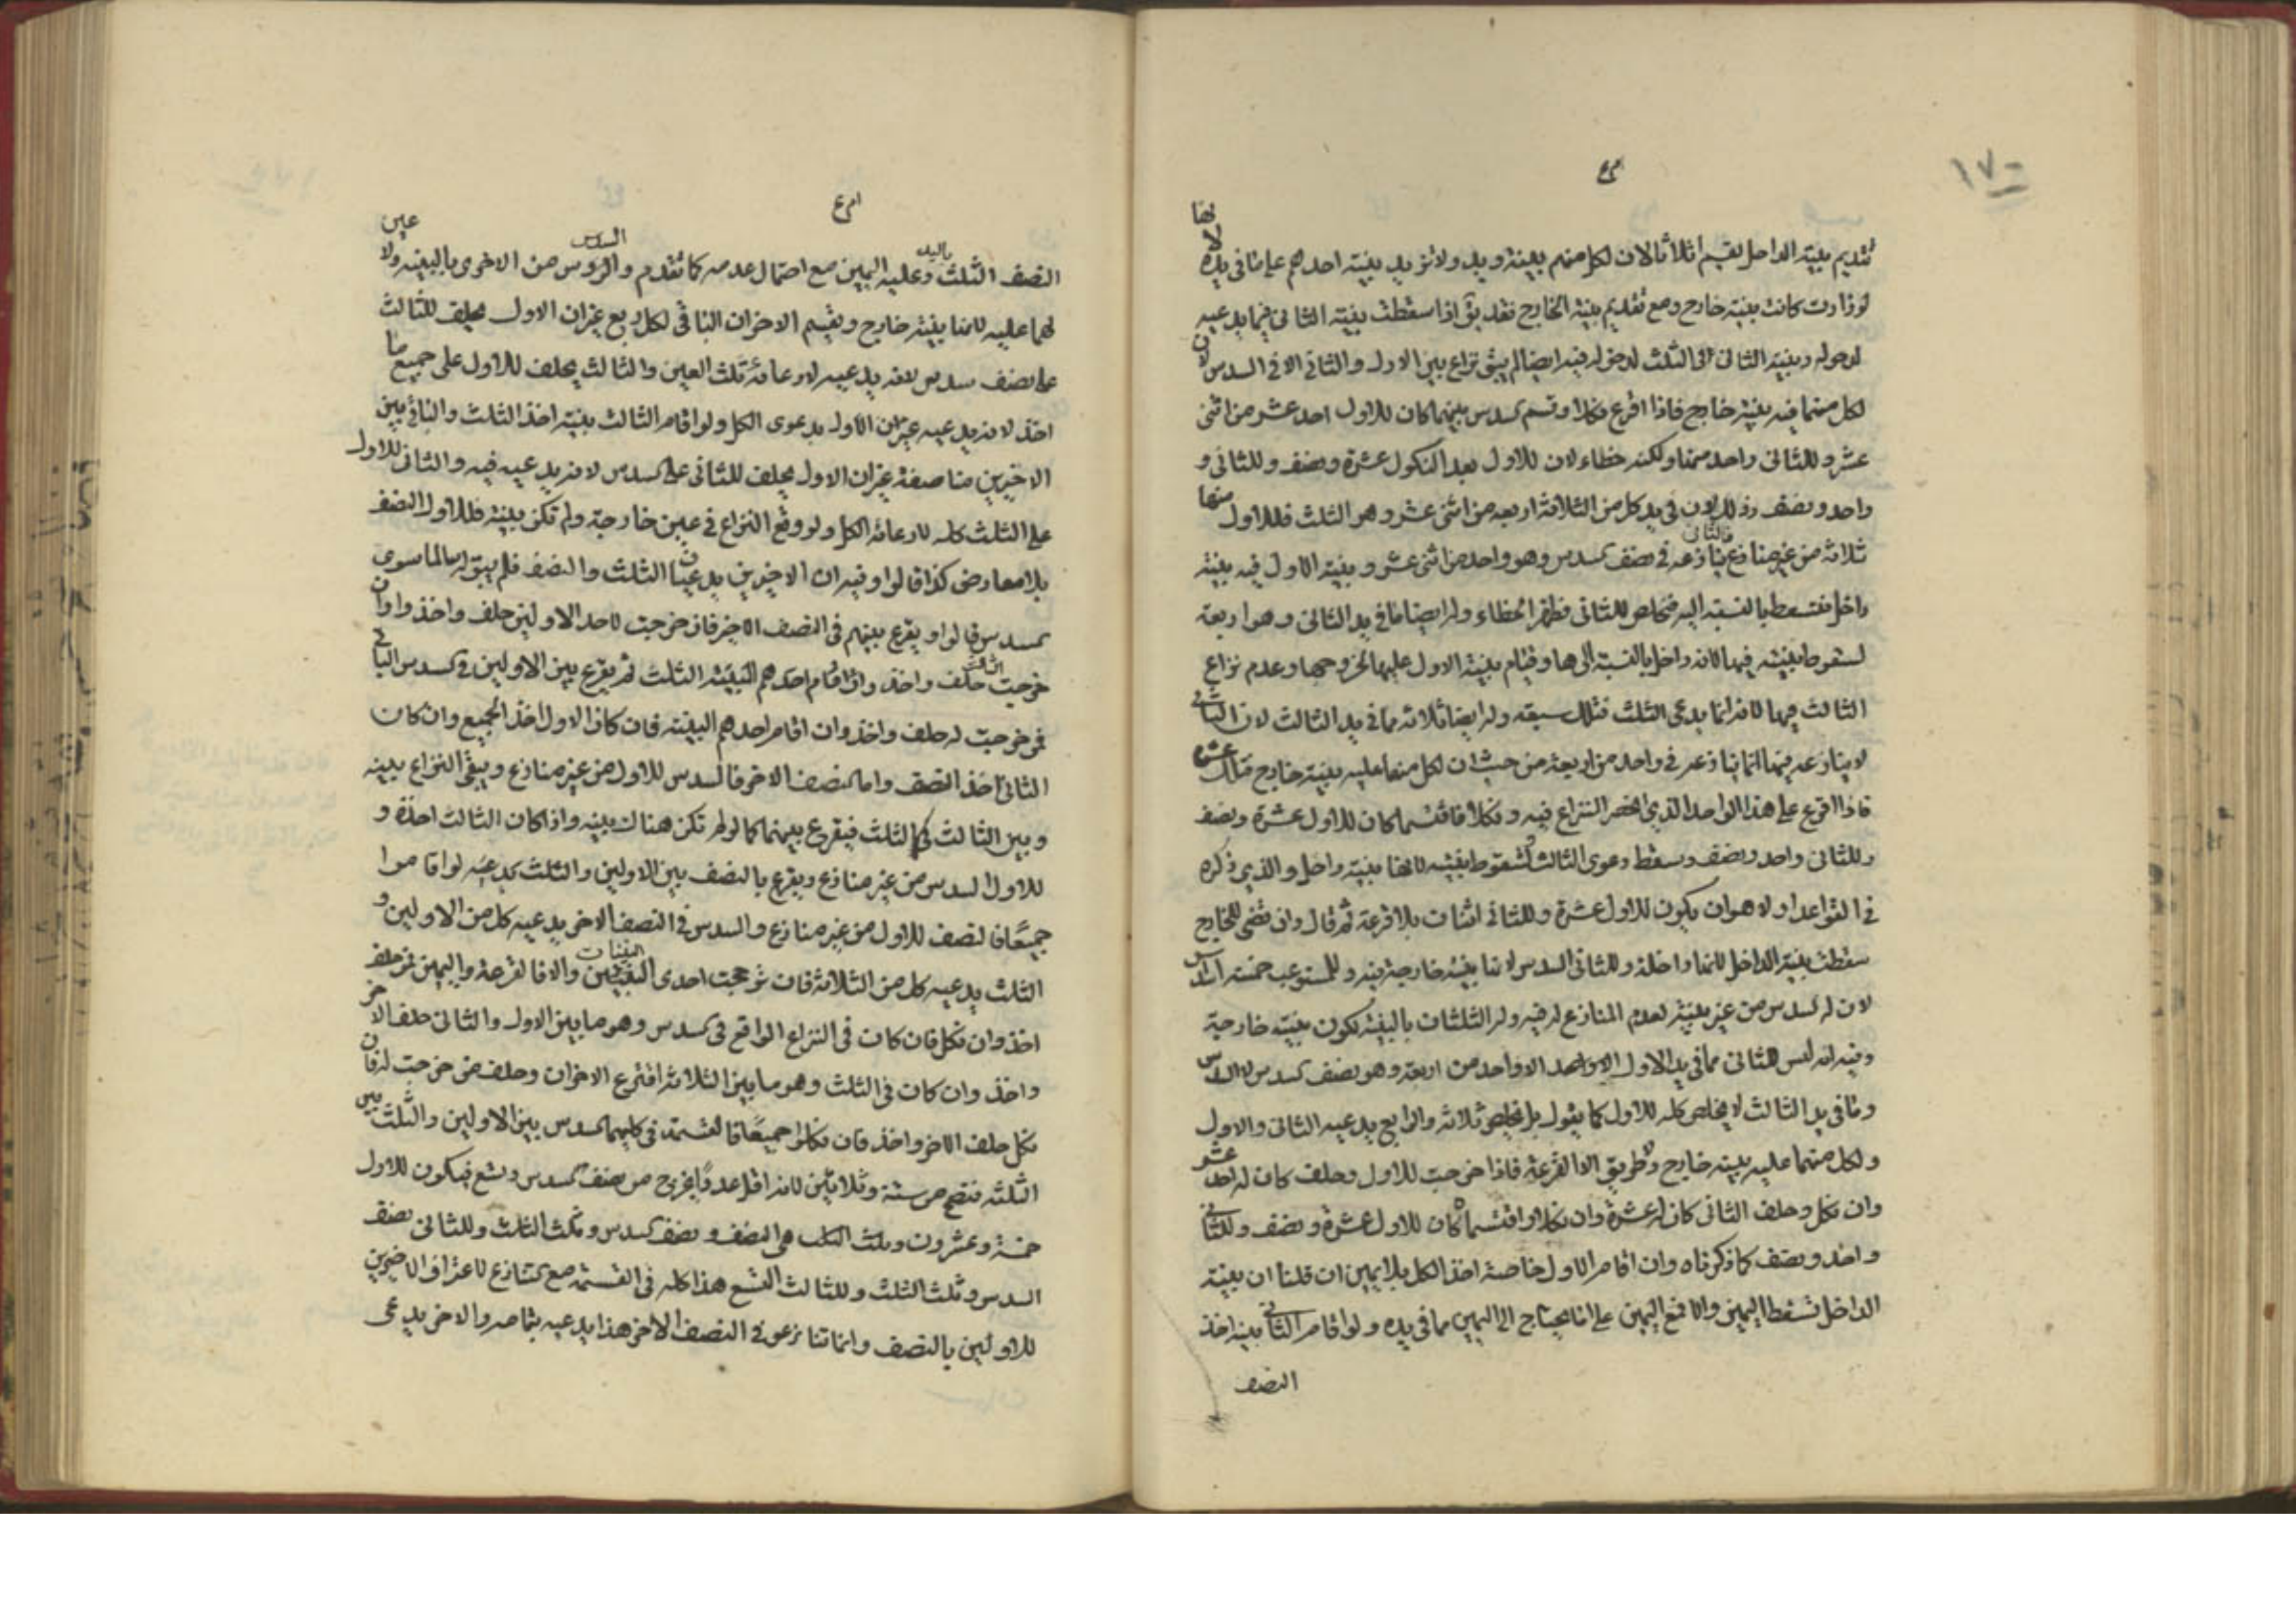 ١٧٠
تقديم بينة الداخل يقسم أثلاثا لان لكل منهم بينة ويد ولا تزيد بينة احدهم على ما في يده لانها
لو زادت كانت بينة خارج ومع تقديم بينة الخارج فقد يق اذا سقطت بينة الثانى فيما يدعيه
لدخوله وبينة الثانى الثلث لدخوله فيه ايضا لم يبق نزاع بين الاول والثانى الا في السدس لان
لكل منهما فيه بينة خارج فاذا اقرع فنكلا وقسم السدس بينهما كان للاول احد عشر من اثنى
عشر وللثانى واحد منها ولكنه خطاء لان للاول بعد النكول عشرة ونصف وللثانى و
واحد ونصف وذلك لان في يد كل من الثلاثة اربعه من اثنى عشر وهو الثلث فللاول منها
ثلاثة من غير منازع والثانى ينازعه في نصف السدس وهو واحد من اثنى عشر وبينة الاول فيه بينة
داخل فتسقط بالنسبة اليه فتخلص للثانى فظهر الخطاء وله ايضا ما في يد الثانى وهو اربعة
لسقوط بينته فيها لانه داخل بالنسبة اليها وقيام بينة الاول عليها لخروجها وعدم نزاع
الثالث فيها لانه انما يدعى الثلث فتلك سبعة وله ايضا ثلاثة مما في يد الثالث لان الثانى
لا ينازعه فيها انما ينازعه في واحد من اربعة من حيث ان لكل منهما عليه بينة خارج فتلك عشرة
فاذا اقرع على هذا الواحد الذي انحصر النزاع فيه ونكلا فاقتسما كان للاول عشرة ونصف
وللثانى واحد ونصف وسقط دعوى الثالث لسقوط بينته لانها بينة داخل والذي ذكره
في القواعد اولا هو ان يكون للاول عشرة وللثانى اثنان بلا قرعة ثم قال وان قضى للخارج
سقطت بينة الداخل لانها داخلة وللثانى السدس لانها بينة خارجة فيه وللمستوعب خمسة اسداس
لان له السدس من غير بينة لعدم المنازع له فيه وله الثلثان بالبينة لكون بينته خارجة
وفيه انه ليس للثانى مما في يد الاول الا واحد من اربعة وهو نصف السدس لا السدس
وما في يد الثالث لا يخلص كله للاول كما يقول بل يخلص ثلاثة والرابع يدعيه الثانى والاول
ولكل منهما عليه بينة خارج ولا طريق الا القرعة فاذا خرجت للاول وحلف كان له احد عشر
وان نكل وحلف الثانى كان له عشرة وان نكلا واقتسما كان للاول عشرة ونصف وللثانى
واحد ونصف كما ذكرناه وان اقام الاول خاصة اخذ الكل بلا يمين ان قلنا ان بينة
الداخل تسقط اليمين والا فمع اليمين على انما يحتاج الى اليمين مما في يده ولو اقام الثانى بينة اخذ
النصف
النصف الثلث باليد وعليه اليمين مع احتمال عدمه كما تقدم والسدس من الاخرى بالبينة ولا يمين
لهما عليه لانها بينة خارج ويقسم الاخران الباقى لكل ربع غير ان الاول يحلف للثالث
على نصف سدس لانه يدعيه لادعائه ثلث العين والثالث يحلف للاول على جميع ما
اخذ لانه يدعيه غير ان الاول بدعوى الكل ولو اقام الثالث بينة اخذ الثلث والباقى بين
الاخيرين مناصفة غير ان الاول يحلف للثانى على السدس لانه يدعيه فيه والثانى للاول
على الثلث كله لادعائه الكل ولو وقع النزاع في عين خارجة ولم تكن بينة فللاول النصف
بلا معارض كذا قالوا وفيه ان الاخيرين يدعيان الثلث والنصف فلم يبق له سالما سوى
السدس قالوا ويقرع بينهم في النصف الاخر فان خرجت لاحد الاولين حلف واخذ وان
خرجت للثالث حلف واخذ واذا قام احدهم البينة الثلث ثم يقرع بين الاولين في السدس الباقى
فمن خرجت له حلف واخذ وان اقام احدهم البينة فان كان الاول اخذ الجميع وان كان
الثانى اخذ النصف واما النصف الاخر فالسدس للاول من غير منازع ويبقى النزاع بينه
وبين الثالث في الثلث فيقرع بينهما كما لو لم تكن هناك بينة واذا كان الثالث اخذه و
للاول السدس من غير منازع ويقرع بالنصف بين الاولين والثلث يدعيه لو اقاموا
جميعا فالنصف للاول من غير منازع والسدس في النصف الاخر يدعيه كل من الاولين و
الثلث يدعيه كل من الثلاثة فان ترجحت احدى البينات والا فالقرعة واليمين فمن حلف
اخذ وان نكل فان كان في النزاع الواقع في السدس وهو ما بين الاول والثانى حلف الاخر
واخذ وان كان في الثلث وهو ما بين الثلاثة اقترع الاخران وحلف من خرجت له فان
نكل حلف الاخر واخذ فان نكلوا جميعا فالقسمة في كليهما السدس بين الاولين والثلث بين
الثلثه فتصح من ستة وثلاثين لانه اقل عدد يخرج منه نصف السدس وتسع فيكون للاول
خمسة وعشرون وثلث الثلث هى النصف ونصف السدس وثلث الثلث وللثانى نصف
السدس وثلث الثلث وللثالث التسع هذا كله في القسمة مع التنازع لاعتراف الاخيرين
للاولين بالنصف وانما تنازعوا في النصف الاخر هذا يدعيه بتمامه والاخر يدعى